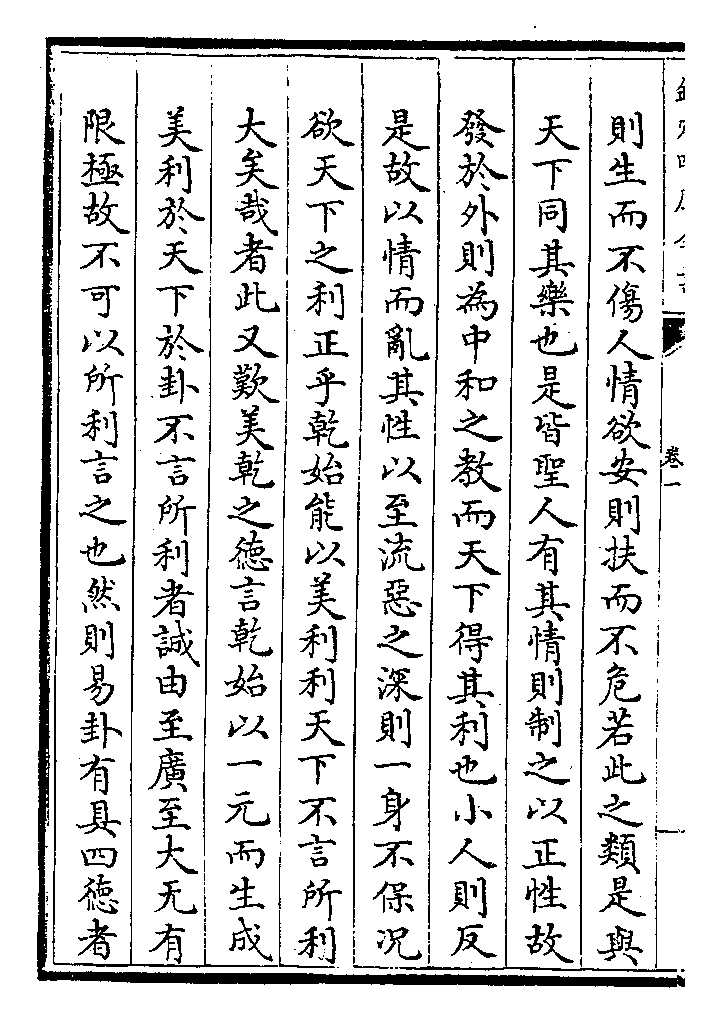 則生而不傷人情欲安則扶而不危若此之類是與
天下同其樂也是皆聖人有其情則制之以正性故
發於外則為中和之教而天下得其利也小人則反
是故以情而亂其性以至流惡之深則一身不保况
欲天下之利正乎乾始能以美利利天下不言所利
大矣哉者此又歎美乾之德言乾始以一元而生成
美利於天下於卦不言所利者誠由至廣至大无有
限極故不可以所利言之也然則易卦有具四德者
卷一